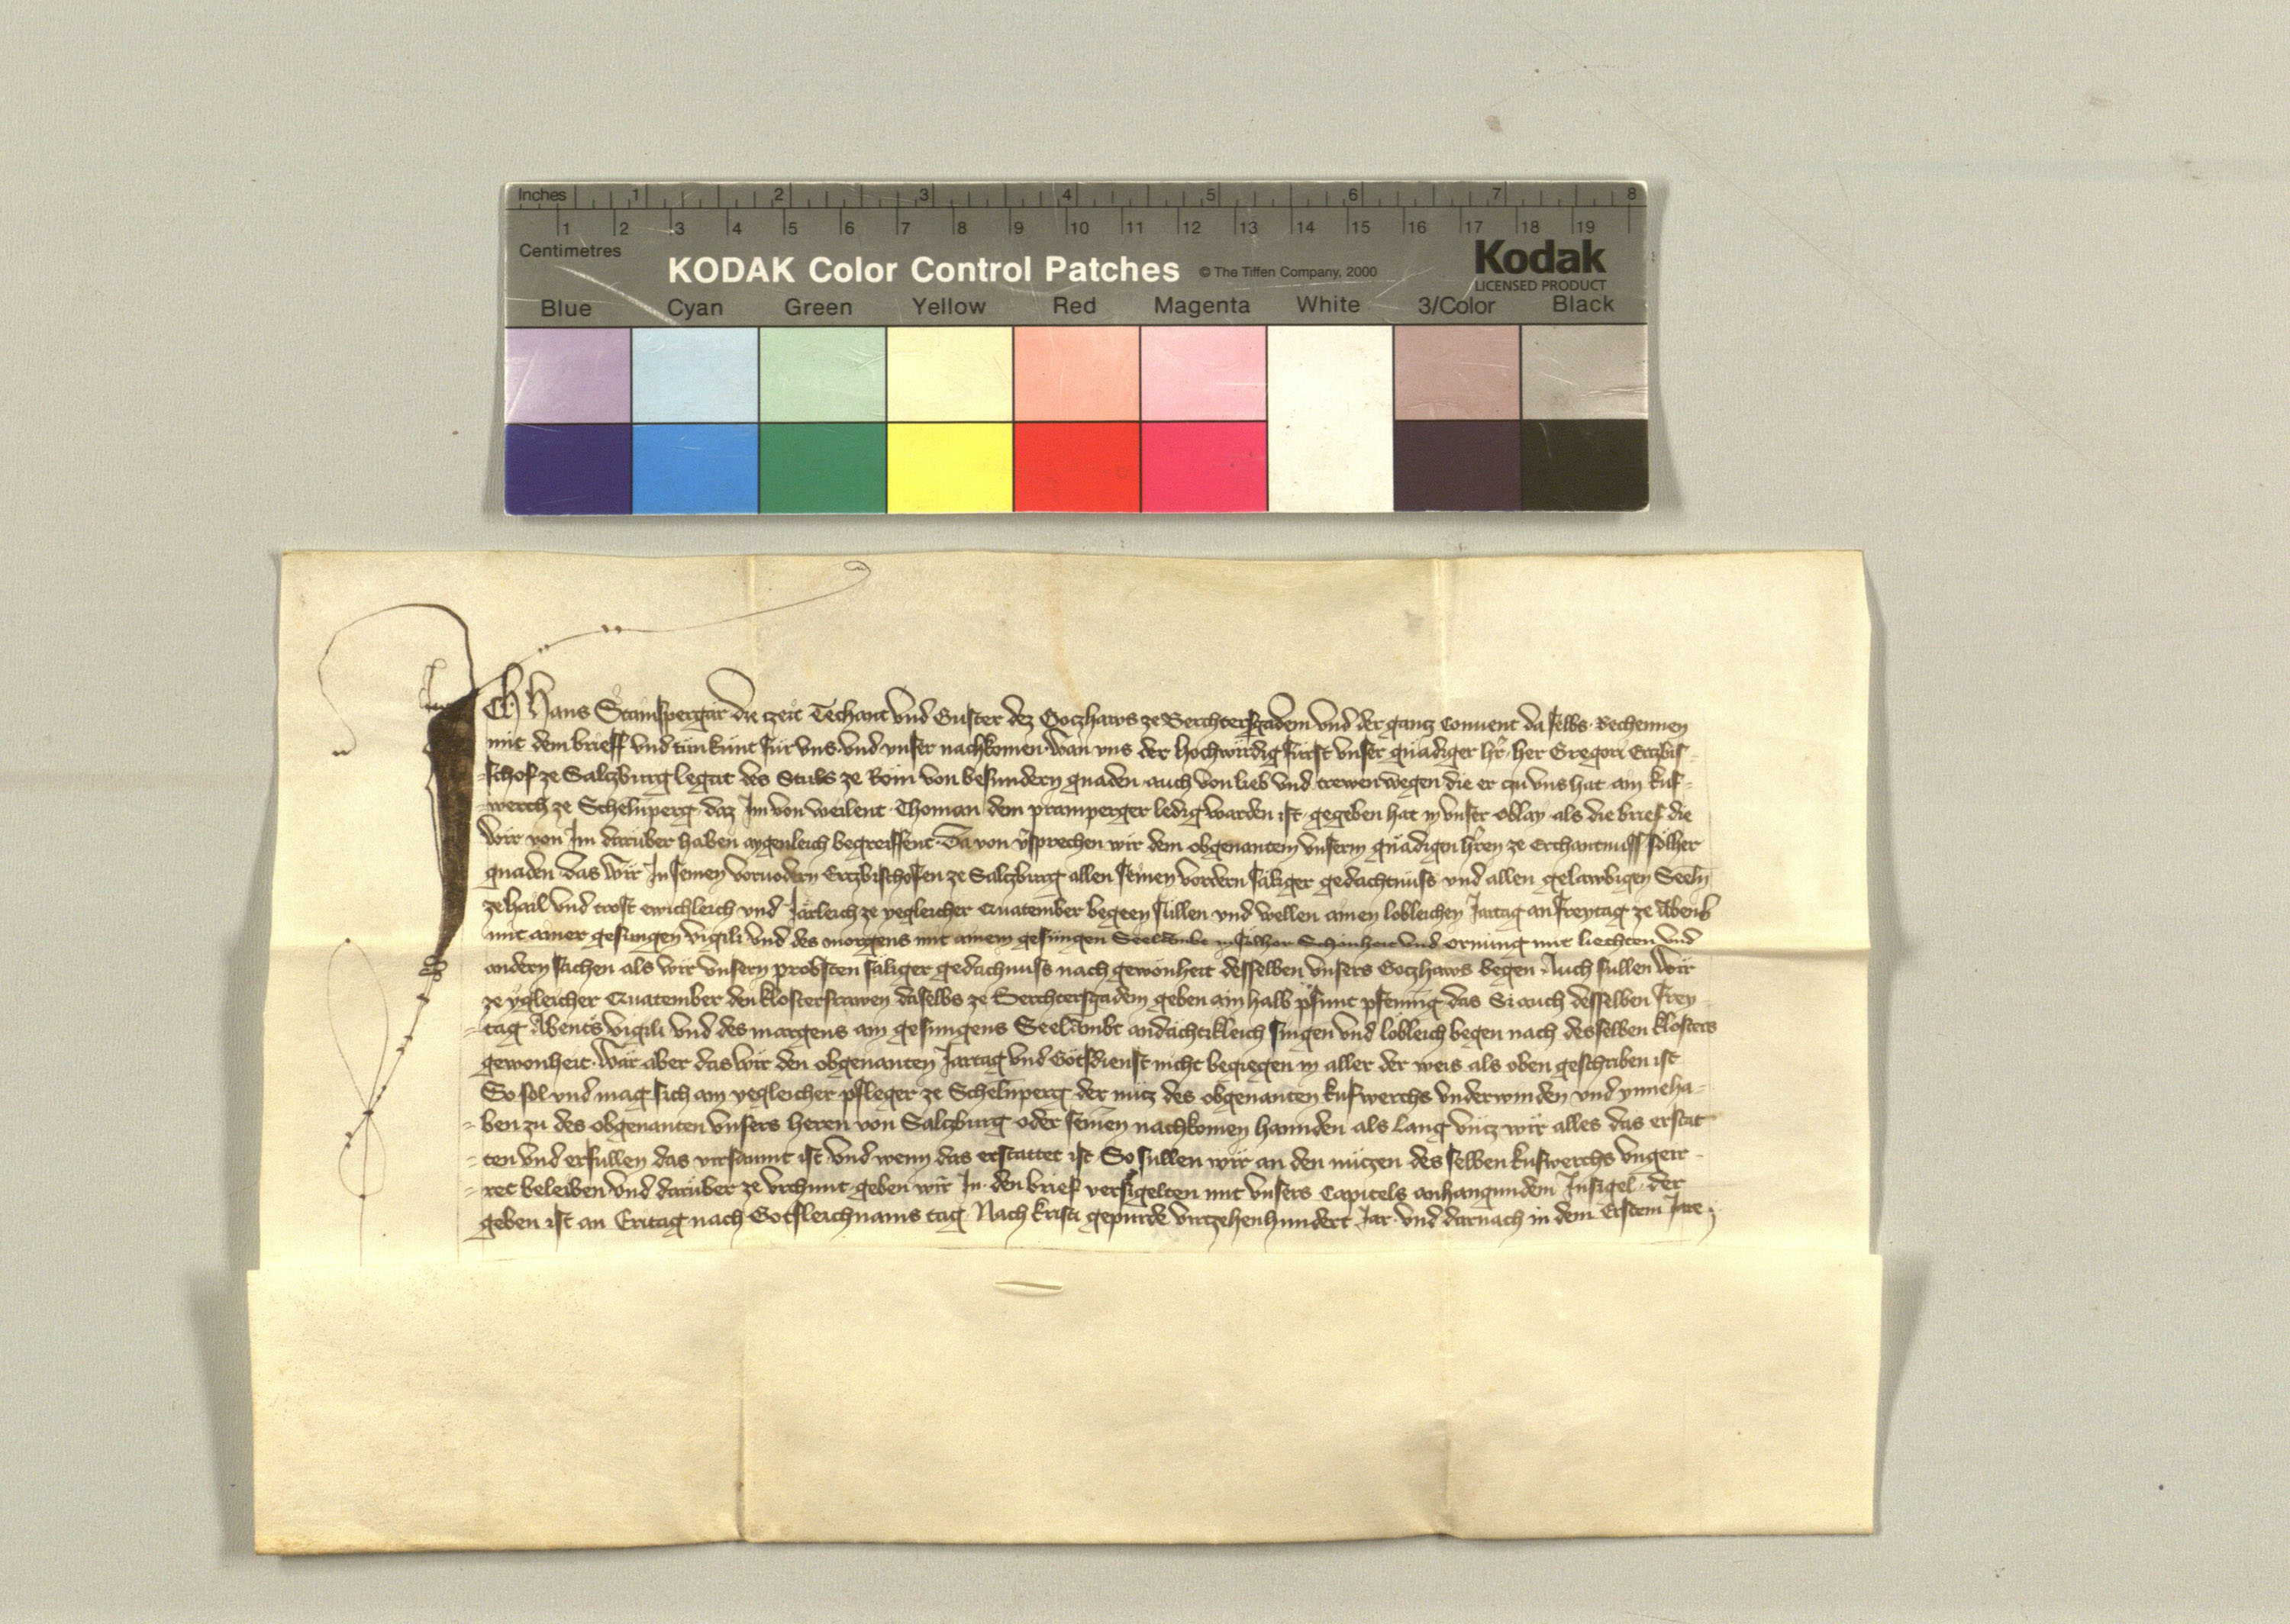 Inches 1 2 3 4 5 6 7 8
1 2 3 4 5 6 7 8 9 10 11 12 13 14 15 16 17 18 19
Centimetres
KODAK Color Control Patches © The Tiffen Company, 2000 Kodak
LICENSED PRODUCT
Blue Cyan Green Yellow Red Magenta White 3/Color Black
Ich Hans die czeit Techant vnd Guster dez Goczhaws ze Berchtersgadem vnd der gancz Conuent da selbs Bechennen
mit dem brieff vnd tün künt für vns vnd vnser nachkomen Wan vns der hochwirdig fürst vnser gnädiger hr̃ her Gregori Erczbis-
schof ze Salczburg legat des Stuls ze Rom von besundern gnaden auch von lieb vnd trewen wegen die er zu vns hat ain kuf-
werch ze Schelnperg daz Im von weilent Thoman dem pramperger ledig warden ist gegeben hat in vnser oblay als die brief die
wir von Im darüber haben aygenleich begreiffent Da von v̆sprechen wir dem obgenantem vnserm gnädigen hr̃en ze Erchantnuss sölher
gnaden das wir In seinen voruodern Erczbischofen ze Salczburg allen seinen vordern säliger gedächtnüss vnd allen gelawbigen Seeln
ze hail vnd trost ewichleich vnd Järleich ze yegleicher Quatember begeen süllen vnd wellen ainen lobleichen Jartag an freytag ze Abents
mit ainer gesungen vigili vnd des morgens mit ainem gesungen Seelambt in sölher Schönhait vnd ornung mit liechten vnd
andern sachen als wir vnsern probsten säliger gedachnüss nach gewonheit desselben vnsers Goczhaws begen Auch sullen wir
ze ygleicher Quatember den klosterfrawen daselbs ze Berchtersgadem geben ain halb pfunt pfening das Si auch desselben frey-
tag Abents vigili vnd des margens ain gesungens Seelambt andächtikleich singen vnd lobleich begen nach desselben klosters
gewonheit Wär aber das wir den obgenanten Jartag vnd Gotsdienst nicht begiengen in aller der weis als oben geschriben ist
So sol vnd mag sich ain yegleicher pfleger ze Schelnperg der nücz des obgenanten kufwerchs vnderwinden vnd ynneha-
ben zu des obgenanten vnsers heren von Salczburg oder seinen nachkomen hannden als lang vncz wir alles das erstat-
ten vnd erfullen das versaumt ist vnd wenn das erstattet ist So sullen wir an den nüczen des selben kufwerchs vngeir-
ret beleiben vnd darüber ze vrchunt geben wir In den brief versigelten mit vnsers Capitels anhangundem Insigel der
geben ist an Eritag nach Gotsleichnams tag Nach Kristi gepurde virczehenhundert Jar vnd darnach in dem Ersten Jare